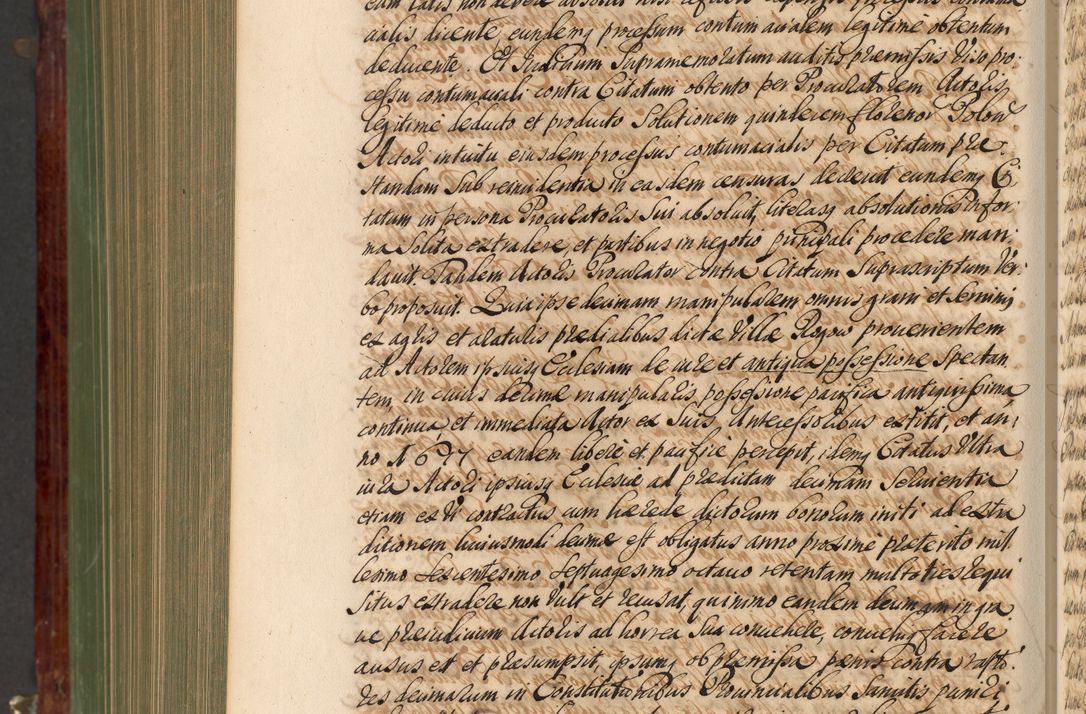 eum talis non debere absolvi nisi refusis expensis processus contuma
cialis dicente eundemq processum contumacialem legitime obtentum
deducente. Et Iudicium Supramemoratum auditis præmissis Viso pro
cessu contumaciali contra Citatum obtento per Procuratorem Actoris
legitime deducto et producto Solutionem quindecim florenor Polon
Actori intuitu eiusdem processus contumacialis per Citatum præ
standam Sub reincidentia in easdem censuras decrevit eundemq Ci
tatum in persona Procuratoris Sui absoluit, literasq absolutionis in for
ma Solita extradere et partibus in negotio principali procedere man
dauit. Tandem Actoris Procurator contra Citatum Suprascriptum Ver
bo proposuit. Quia ipse decimam manipularem omnis grani et Seminis
ex agris et araturis prædialibus dictæ Villæ Rogow prouenientem
ad Actorem ipsiusq Ecclesiam de iure et antiqua possessione Spectan
tem, in cuius decimæ manipularis possessione pacifica antiquissima
continua et immediata Actor ex Suis Antecessoribus extitit, et an
no 1677 eandem libere et pacifice percepit, idemq Citatus Ultra
iura Actori ipsiusq Ecclesiæ ad prædictam decimam Seruientia
etiam ex Vi contractus cum hærede dictorum bonorum initi ad extra
ditionem huiusmodi decimæ est obligatus anno proxime præterito mil
lesimo Sexcentesimo Septuagesimo octauo retentam multoties requi
situs extradere non Vult et recusat, quinimo eandem decimam in gra
ue præiudicium Actoris ad horrea Sua conuehere, conuehiq facere
ausus est et præsumpsit, ipsumq ob præmissa pænis contra rapto
res decimarum in Constitutionibus Prouincialibus Sancitis puniri